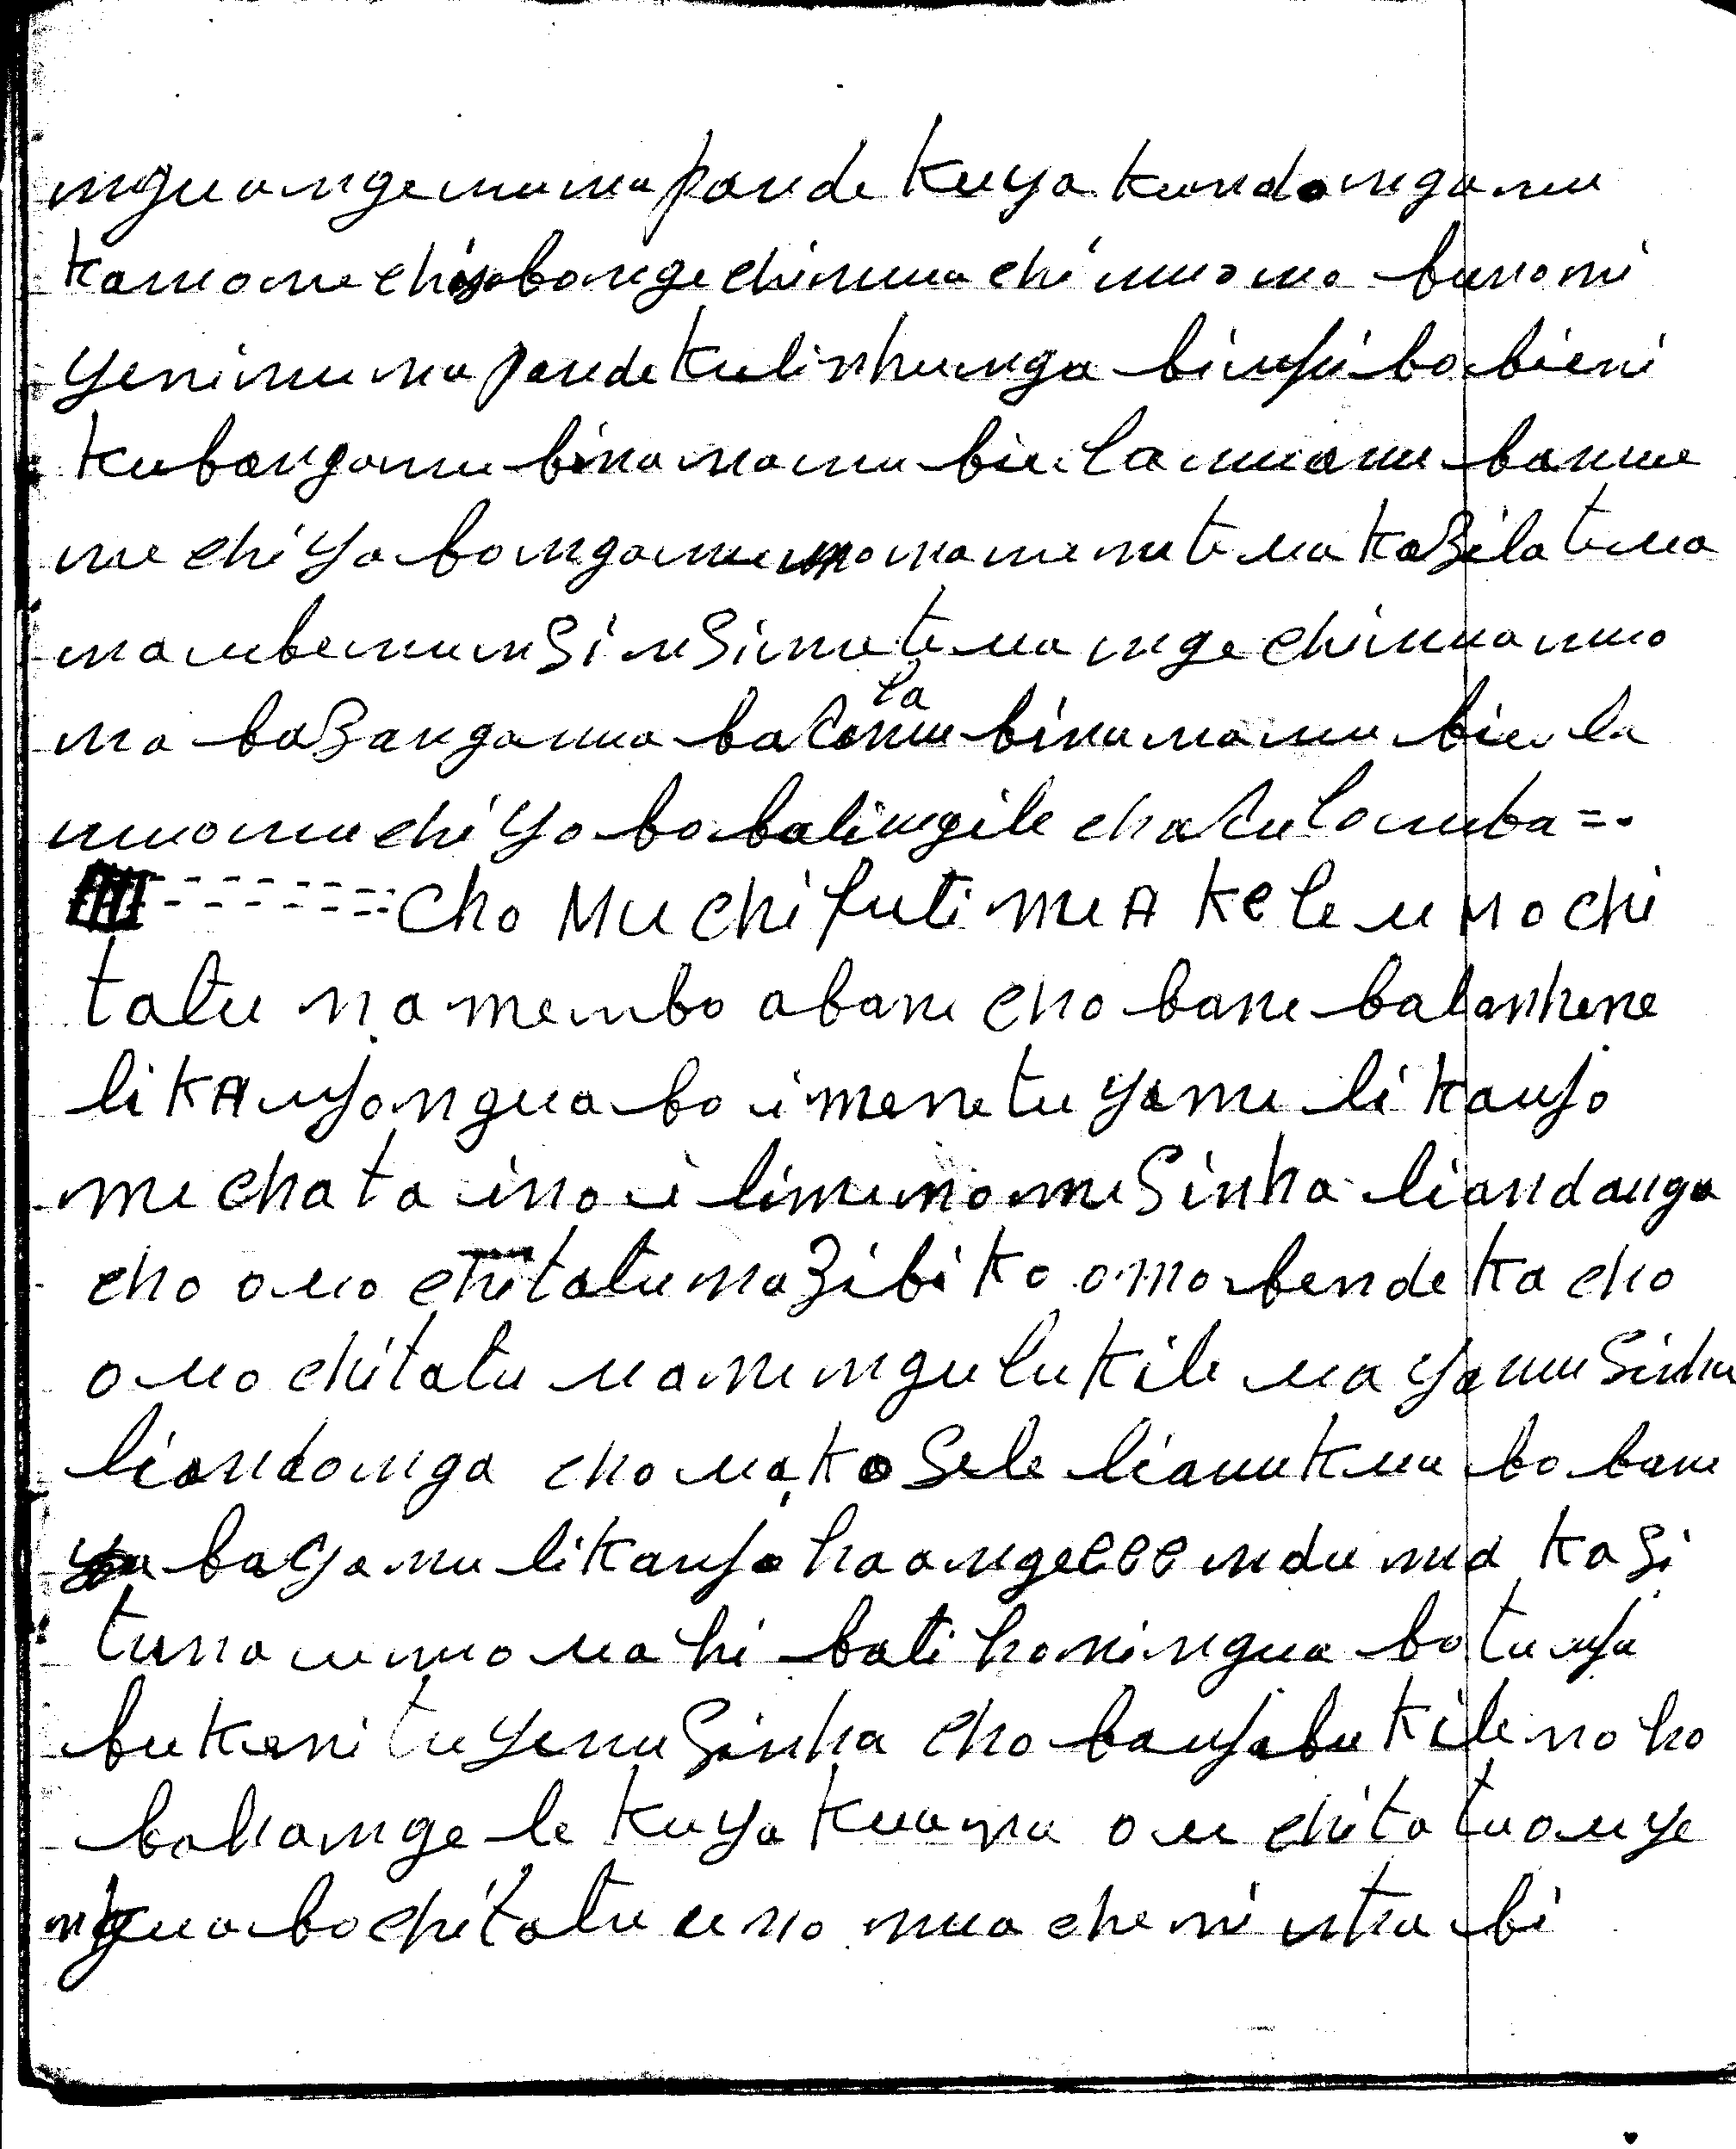 mguangemunapande Kuya Kundongamu
Kamonu chiyabonge chinuua chi muomo bunomi
yeni mu mu pande Kulinhunga binfii bo bieni
Kubangamu binanamu biu la muamu bamue
me chi ya bo ngamu mo namu mutema Kazila tema
mambemumsi nsimu tema nge chimuamuo
ma bazanganua balalamu binamamu biu la
muomu chi yo bo balingile chatulamba =.
Cho Muchifuti mu A Kele u no chi
tatu na membo abane cho bane balanhene
li KAnfo ngua bo i menetu yamu li Kanfo
mu chata ino i limu mo mu Sinha liandanga
cho ouo chitatu na Zibi Ko omo bende Ka cho
ouo chitatu uamu ngulu Kile ua ya mu Sinha
liandonga cho ua Ka Sele liamu Kuu bo bane
ba ya mu li Kanfo ha angeeee ndu mua Kasi
tuna umuo ua hi bati ha ni ngua bo tunfu
bu Kani tu yemu Sinha cho banfabu Kile no ho
bahange le Kuya Kuamu ou chitatu ouye
ngua bo chitatu uno mua che ni ntu bi